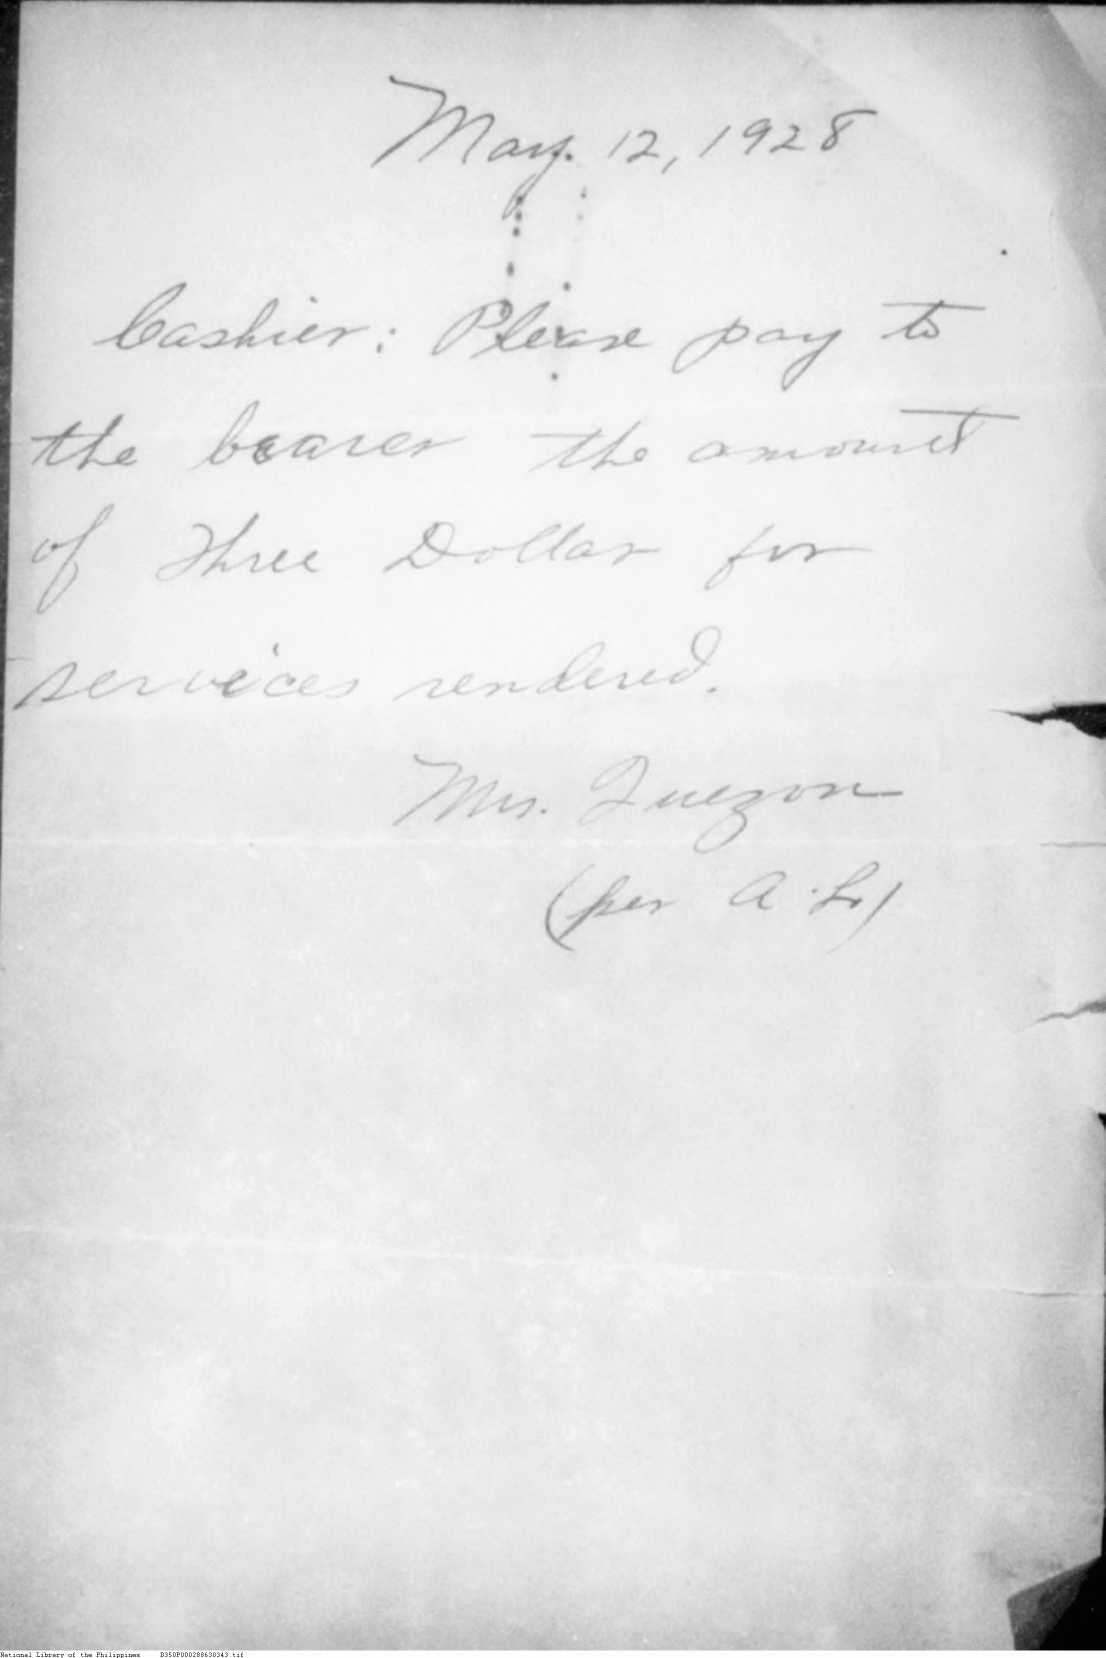 May. 12, 1928
Cashier: Please pay to
the bearer the amount
of Three Dollar for
services rendered.
Mrs. Quezon
(per A. L)
National Library of the Philippines D350P000288630343.tif